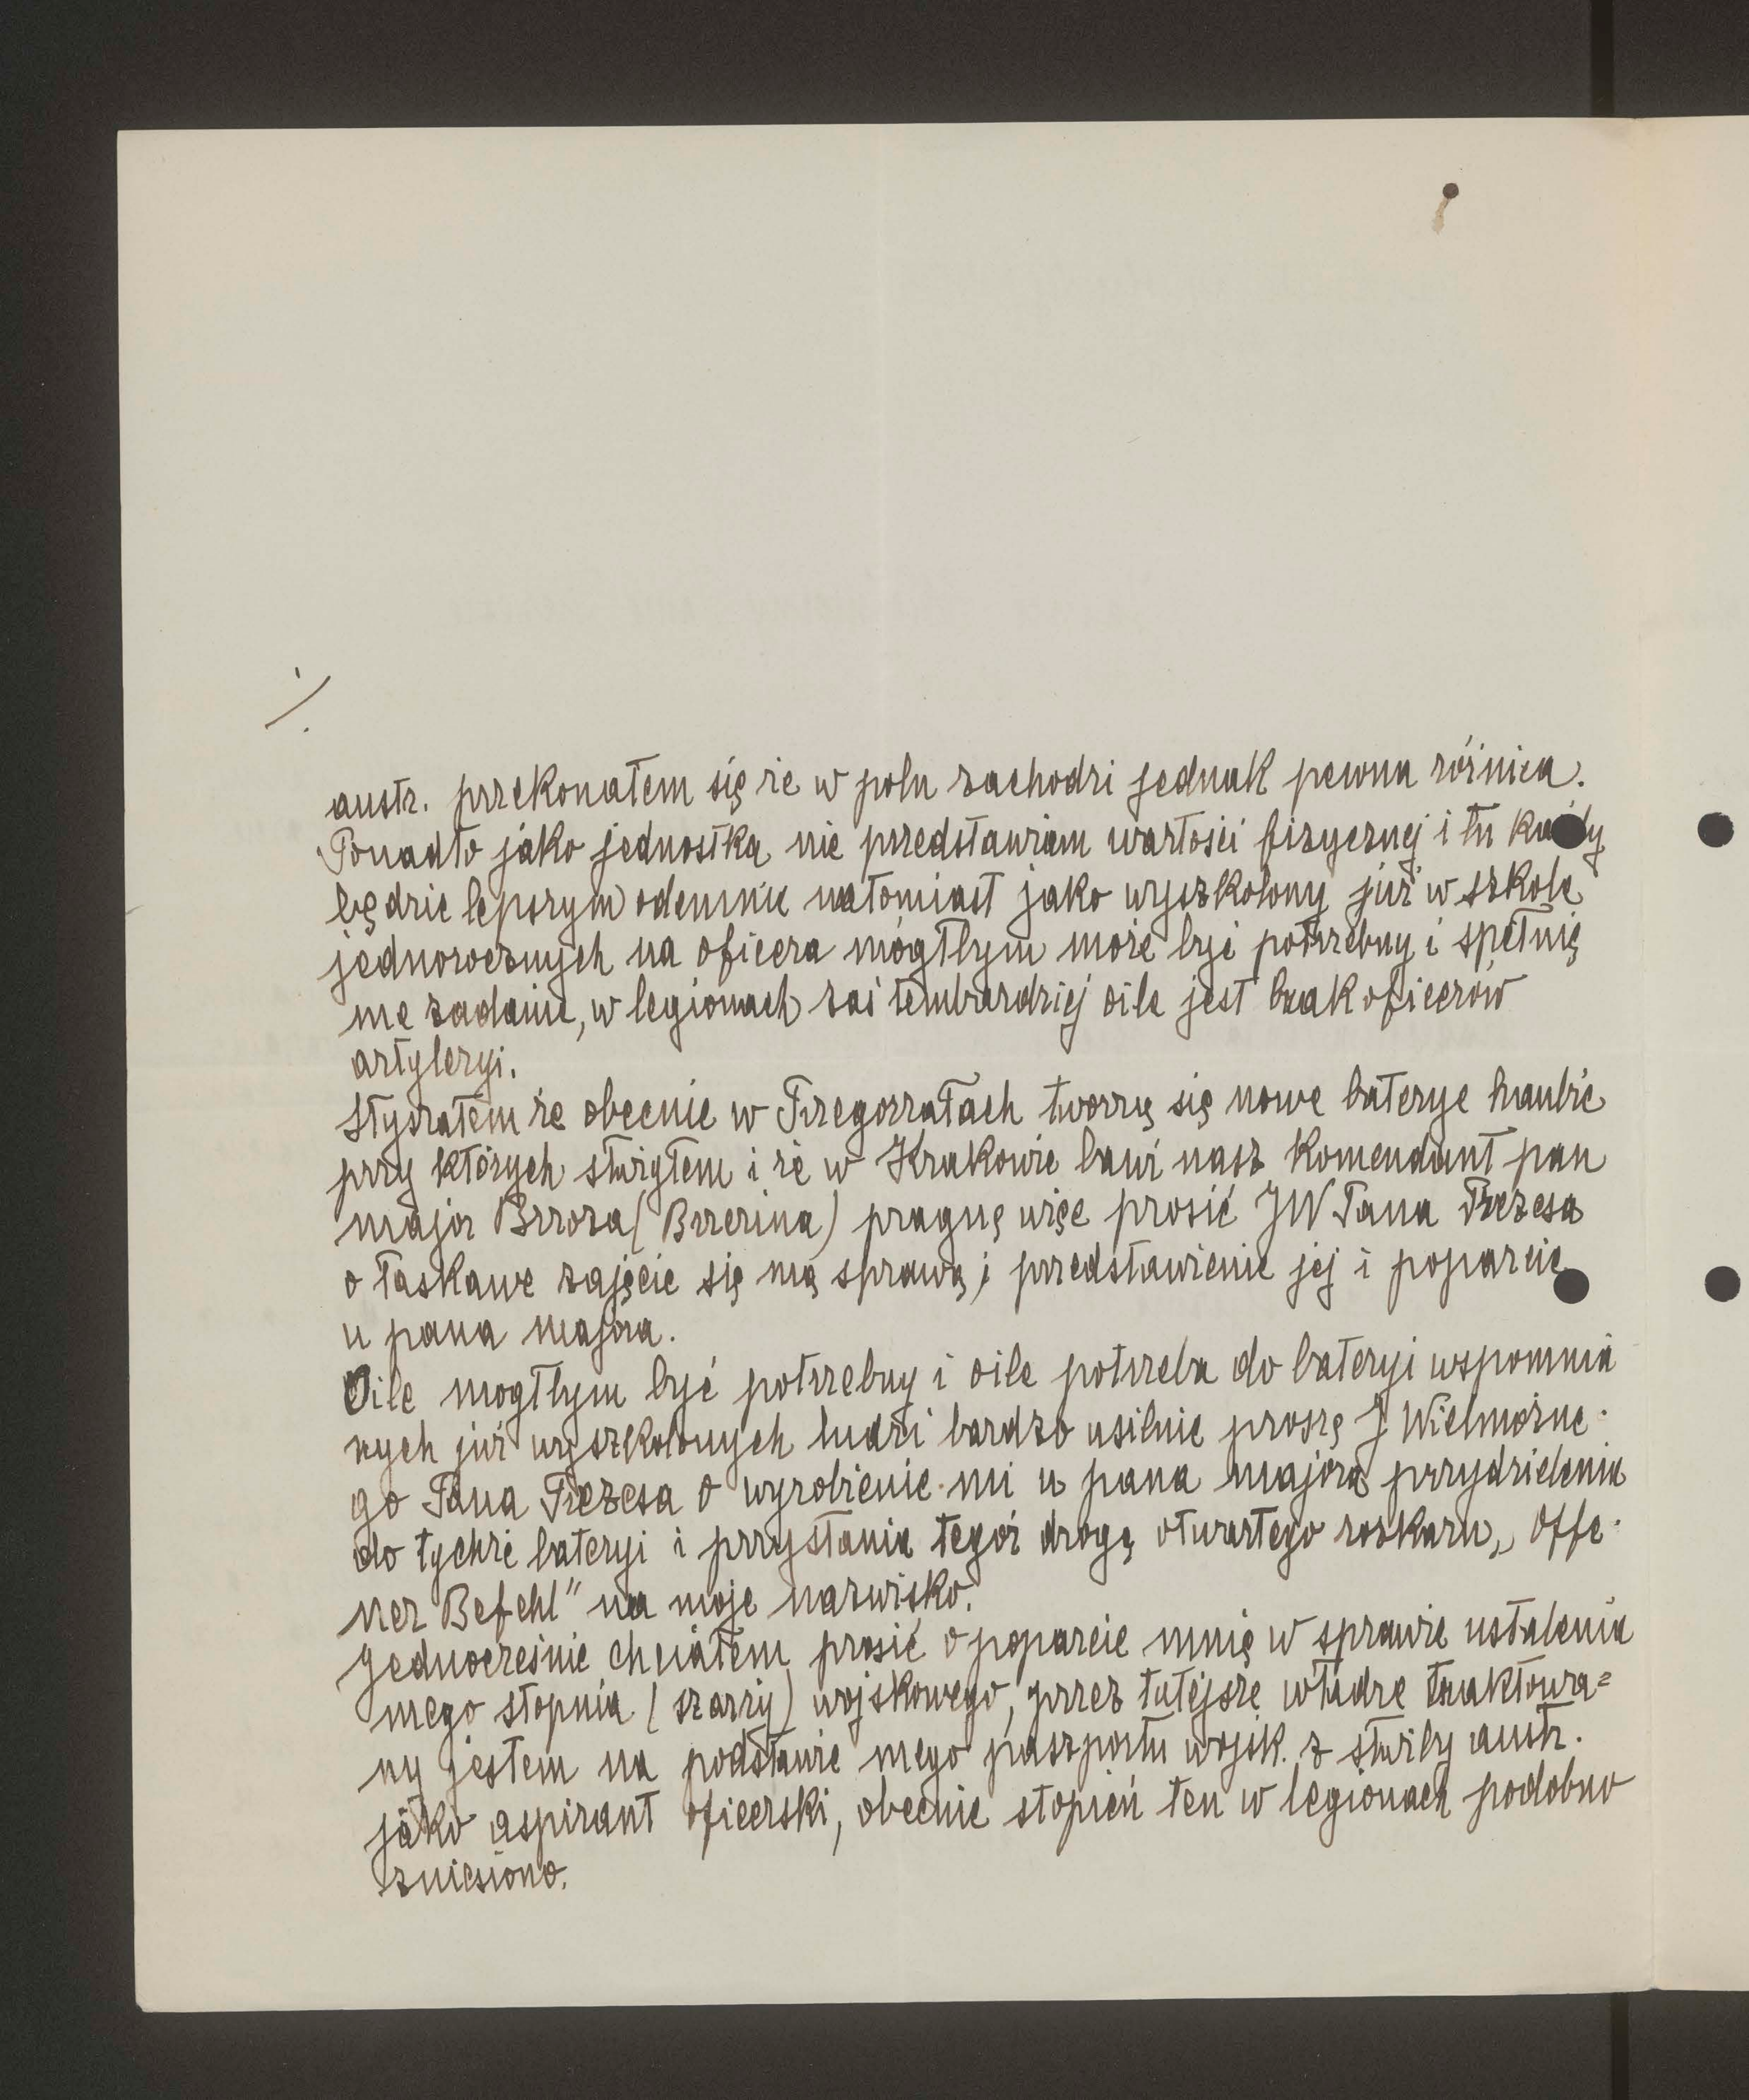 ./.
austr. przekonałem się że w polu zachodzi jednak pewna różnica.
Ponadto jako jednostka nie przedstawiam wartości fizycznej i tu każdy
będzie lepszym odemnie natomiast jako wyszkolony już w szkole
jednorocznych na oficera mógłbym może być potrzebny i spełnię
me zadanie, w legionach zaś tembardziej oile jest brak oficerów
artyleryi.
Słyszałem że obecnie w Przegorzałach tworzą się nowe baterye haubic
przy których służyłem i że w Krakowie bawi nasz komendant pan
major Brzoza (Brzezina) pragnę więc prosić JW Pana Prezesa
o łaskawe zajęcie się mą sprawą i przedstawienie jej i poparcie
u pana majora.
Oile mogłbym być potrzebny i oile potrzeba do bateryi wspomnia
nych już wyszkolonych ludzi bardzo usilnie proszę J Wielmożne-
go Pana Prezesa o wyrobienie mi u pana majora przydzielenia
do tychże bateryi i przysłania tegoż drogą otwartego rozkazu „Offe-
ner Befehl" na moje nazwisko.
Jednocześnie chciałem prosić o poparcie mnie w sprawie ustalenia
mego stopnia (szarży) wojskowego, przez tutejsze władze traktowa=
ny jestem na podstawie mego paszportu wojsk. z służby austr.
jako aspirant oficerski, obecnie stopień ten w legionach podobno
zniesiono.